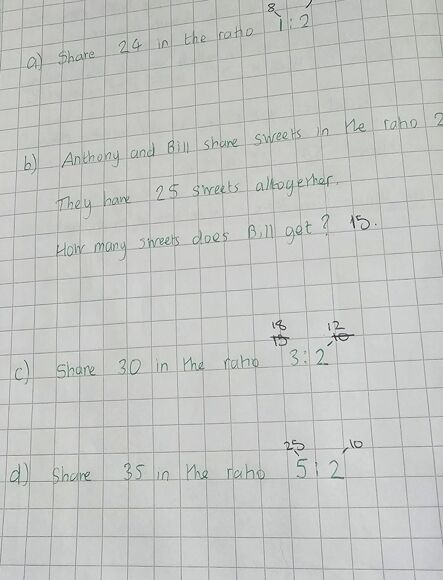 8
a) Share 24 in the ratio 1 : 2
b) Anthony and Bill share sweets in the ratio 2
They have 25 sweets altogether.
How many sweets does Bill get? 15.
18 12
15 10
c) Share 30 in the ratio 3 : 2
25 10
d) Share 35 in the ratio 5 : 2